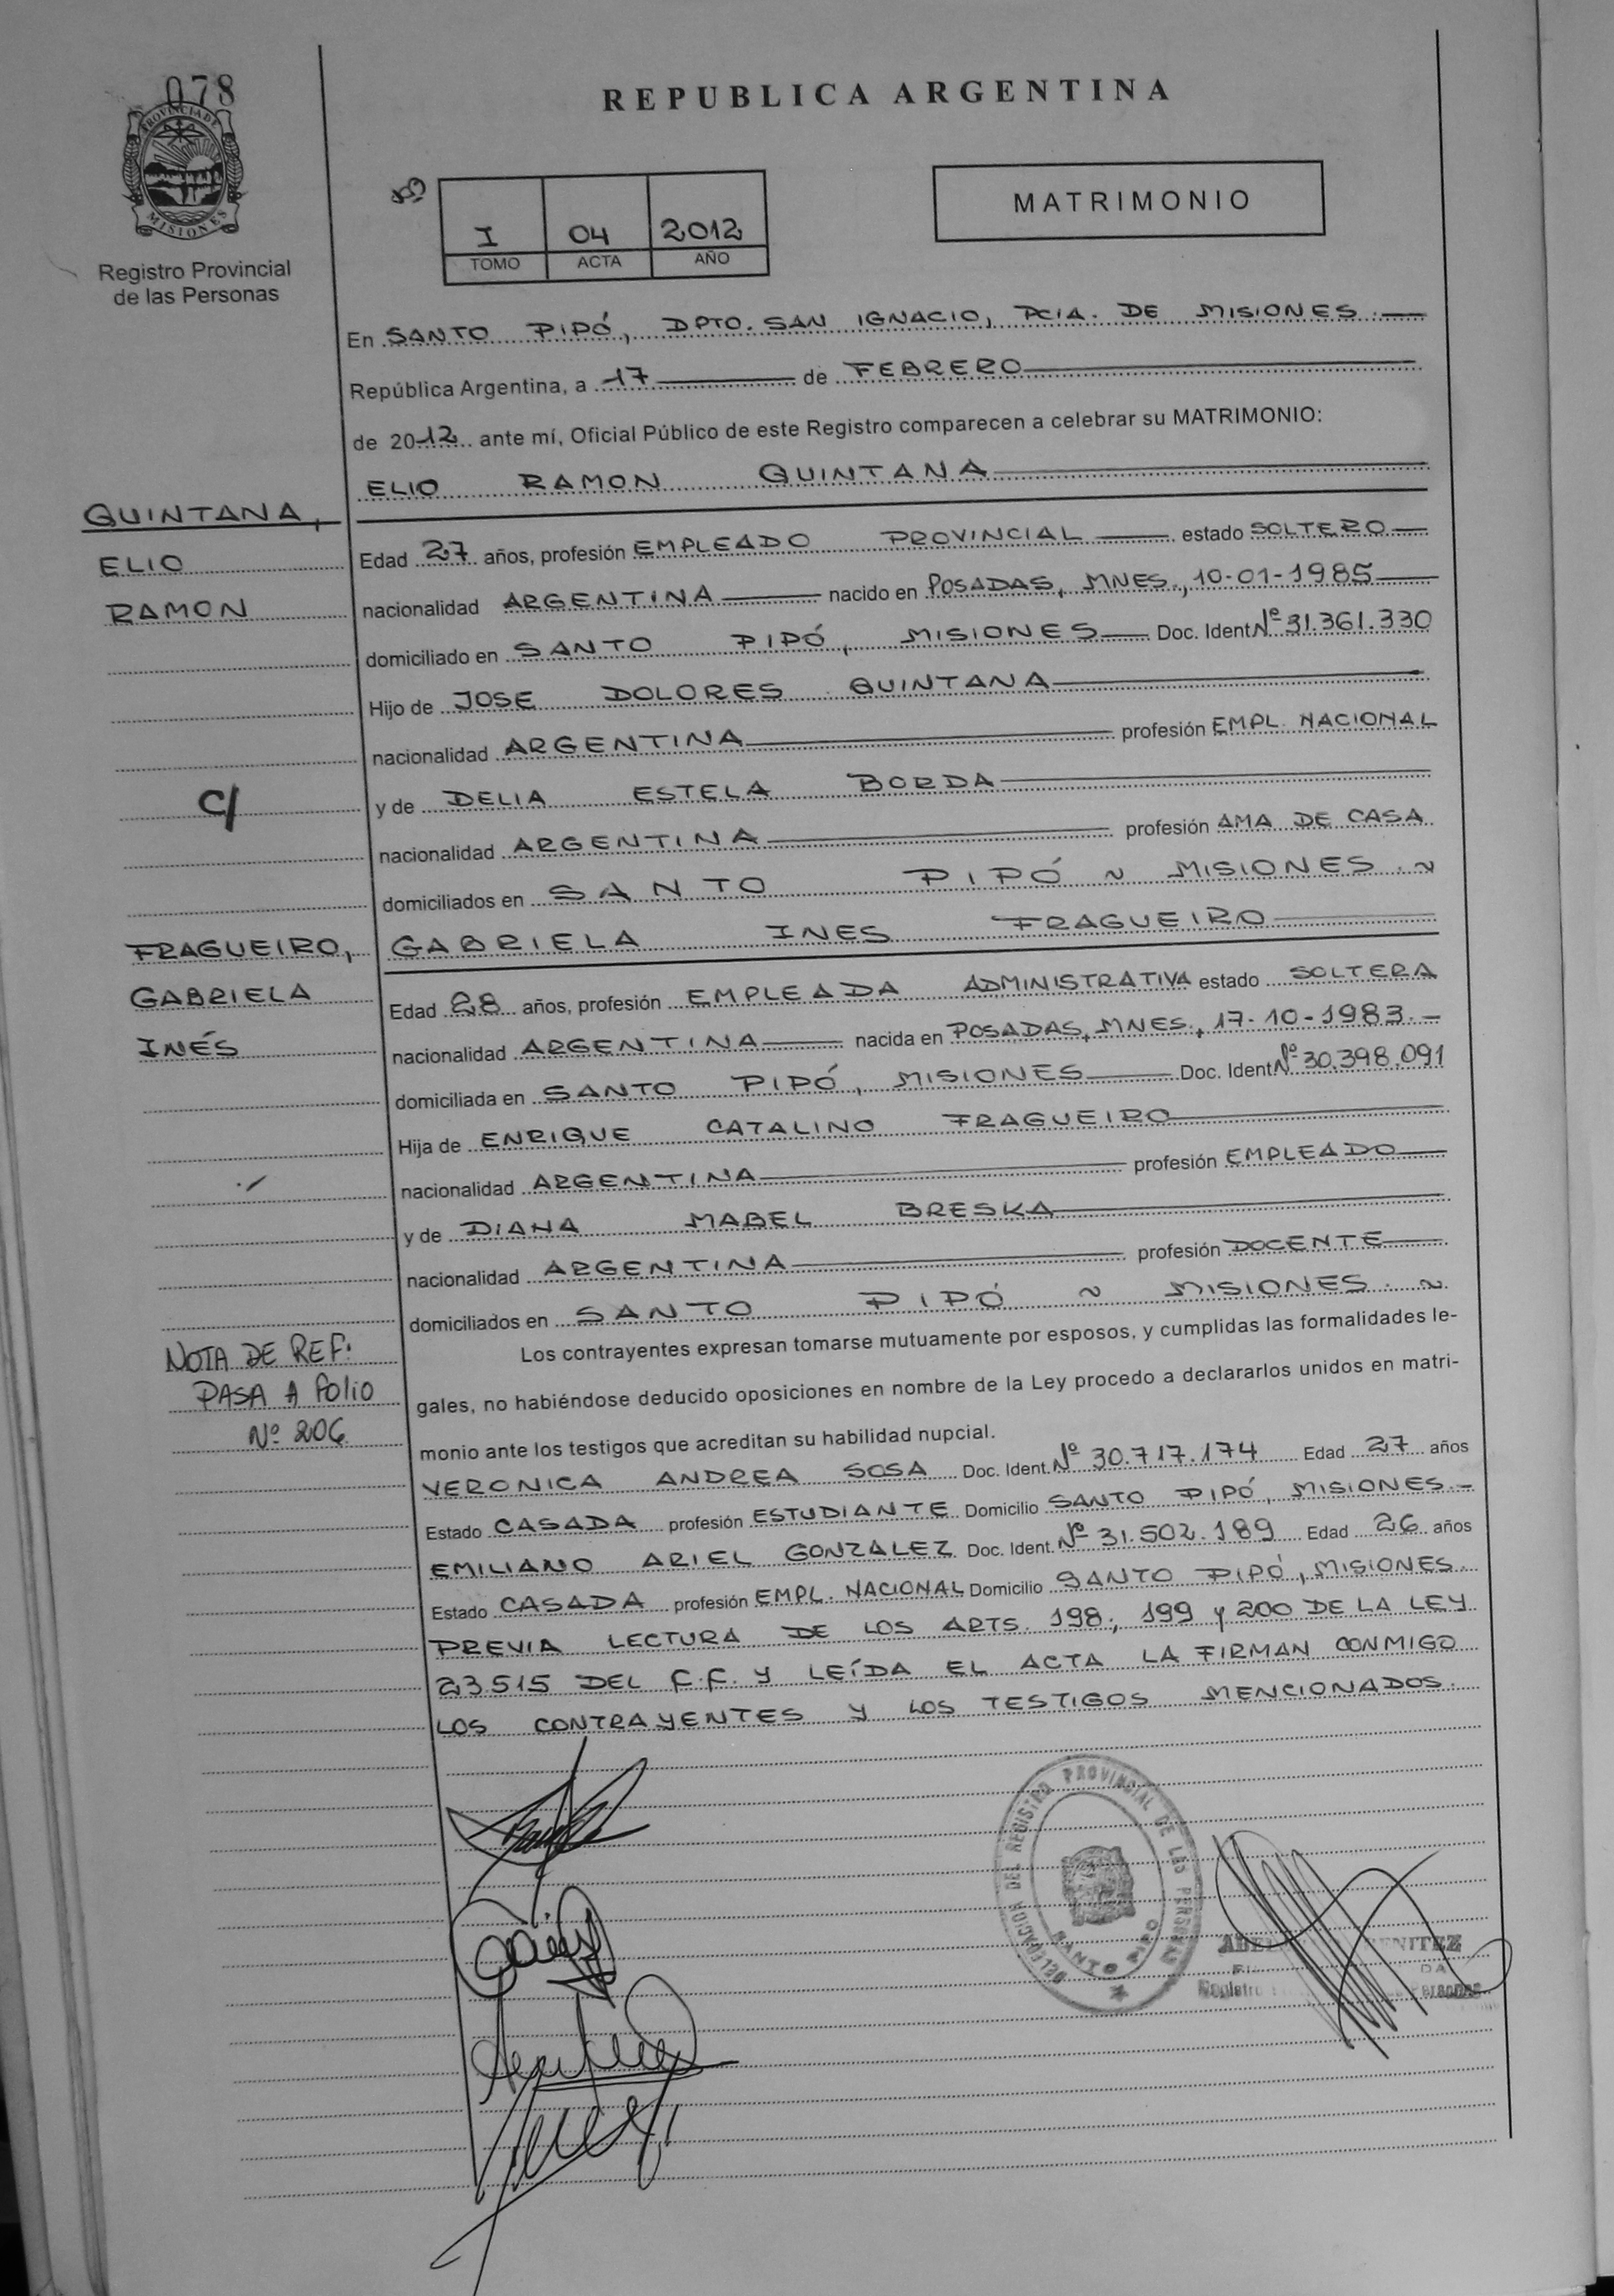 078
PROVINCIA DE
MISIONES
Registro Provincial
de las Personas
REPUBLICA ARGENTINA
MATRIMONIO
I 04 2012
TOMO ACTA AÑO
En SANTO PIPÓ, DPTO. SAN IGNACIO, PCIA. DE MISIONES.
República Argentina, a 17 de FEBRERO
de 2012 ante mí, Oficial Público de este Registro comparecen a celebrar su MATRIMONIO:
ELIO RAMON QUINTANA
QUINTANA,
ELIO
RAMON
Edad 27 años, profesión EMPLEADO PROVINCIAL estado SOLTERO
nacionalidad ARGENTINA nacido en POSADAS, MNES., 10-01-1985
domiciliado en SANTO PIPÓ, MISIONES Doc. Ident Nº 31.361.330
Hijo de JOSE DOLORES QUINTANA
nacionalidad ARGENTINA profesión EMPL. NACIONAL
C/
y de DELIA ESTELA BORDA
nacionalidad ARGENTINA profesión AMA DE CASA
domiciliados en SANTO PIPÓ ~ MISIONES. ~
FRAGUEIRO,
GABRIELA
INÉS
GABRIELA INES FRAGUEIRO
Edad 28 años, profesión EMPLEADA ADMINISTRATIVA estado SOLTERA
nacionalidad ARGENTINA nacida en POSADAS, MNES., 17-10-1983.-
domiciliada en SANTO PIPÓ, MISIONES Doc. Ident Nº 30.398.091
Hija de ENRIQUE CATALINO FRAGUEIRO
nacionalidad ARGENTINA profesión EMPLEADO
y de DIANA MABEL BRESKA
nacionalidad ARGENTINA profesión DOCENTE
domiciliados en SANTO PIPÓ ~ MISIONES. ~
NOTA DE REF:
PASA A FOLIO
Nº 206
Los contrayentes expresan tomarse mutuamente por esposos, y cumplidas las formalidades le-
gales, no habiéndose deducido oposiciones en nombre de la Ley procedo a declararlos unidos en matri-
monio ante los testigos que acreditan su habilidad nupcial.
VERONICA ANDREA SOSA Doc. Ident. Nº 30.717.174 Edad 27 años
Estado CASADA profesión ESTUDIANTE Domicilio SANTO PIPÓ, MISIONES.-
EMILIANO ARIEL GONZALEZ Doc. Ident. Nº 31.502.189 Edad 26 años
Estado CASADA profesión EMPL. NACIONAL Domicilio SANTO PIPÓ, MISIONES.
PREVIA LECTURA DE LOS ARTS. 198, 199 y 200 DE LA LEY
23.515 DEL C.C. Y LEÍDA EL ACTA LA FIRMAN CONMIGO
LOS CONTRAYENTES Y LOS TESTIGOS MENCIONADOS.
DELEGACION DEL REGISTRO PROVINCIAL DE LAS PERSONAS
SANTO PIPO
BENITEZ
Registro Personas